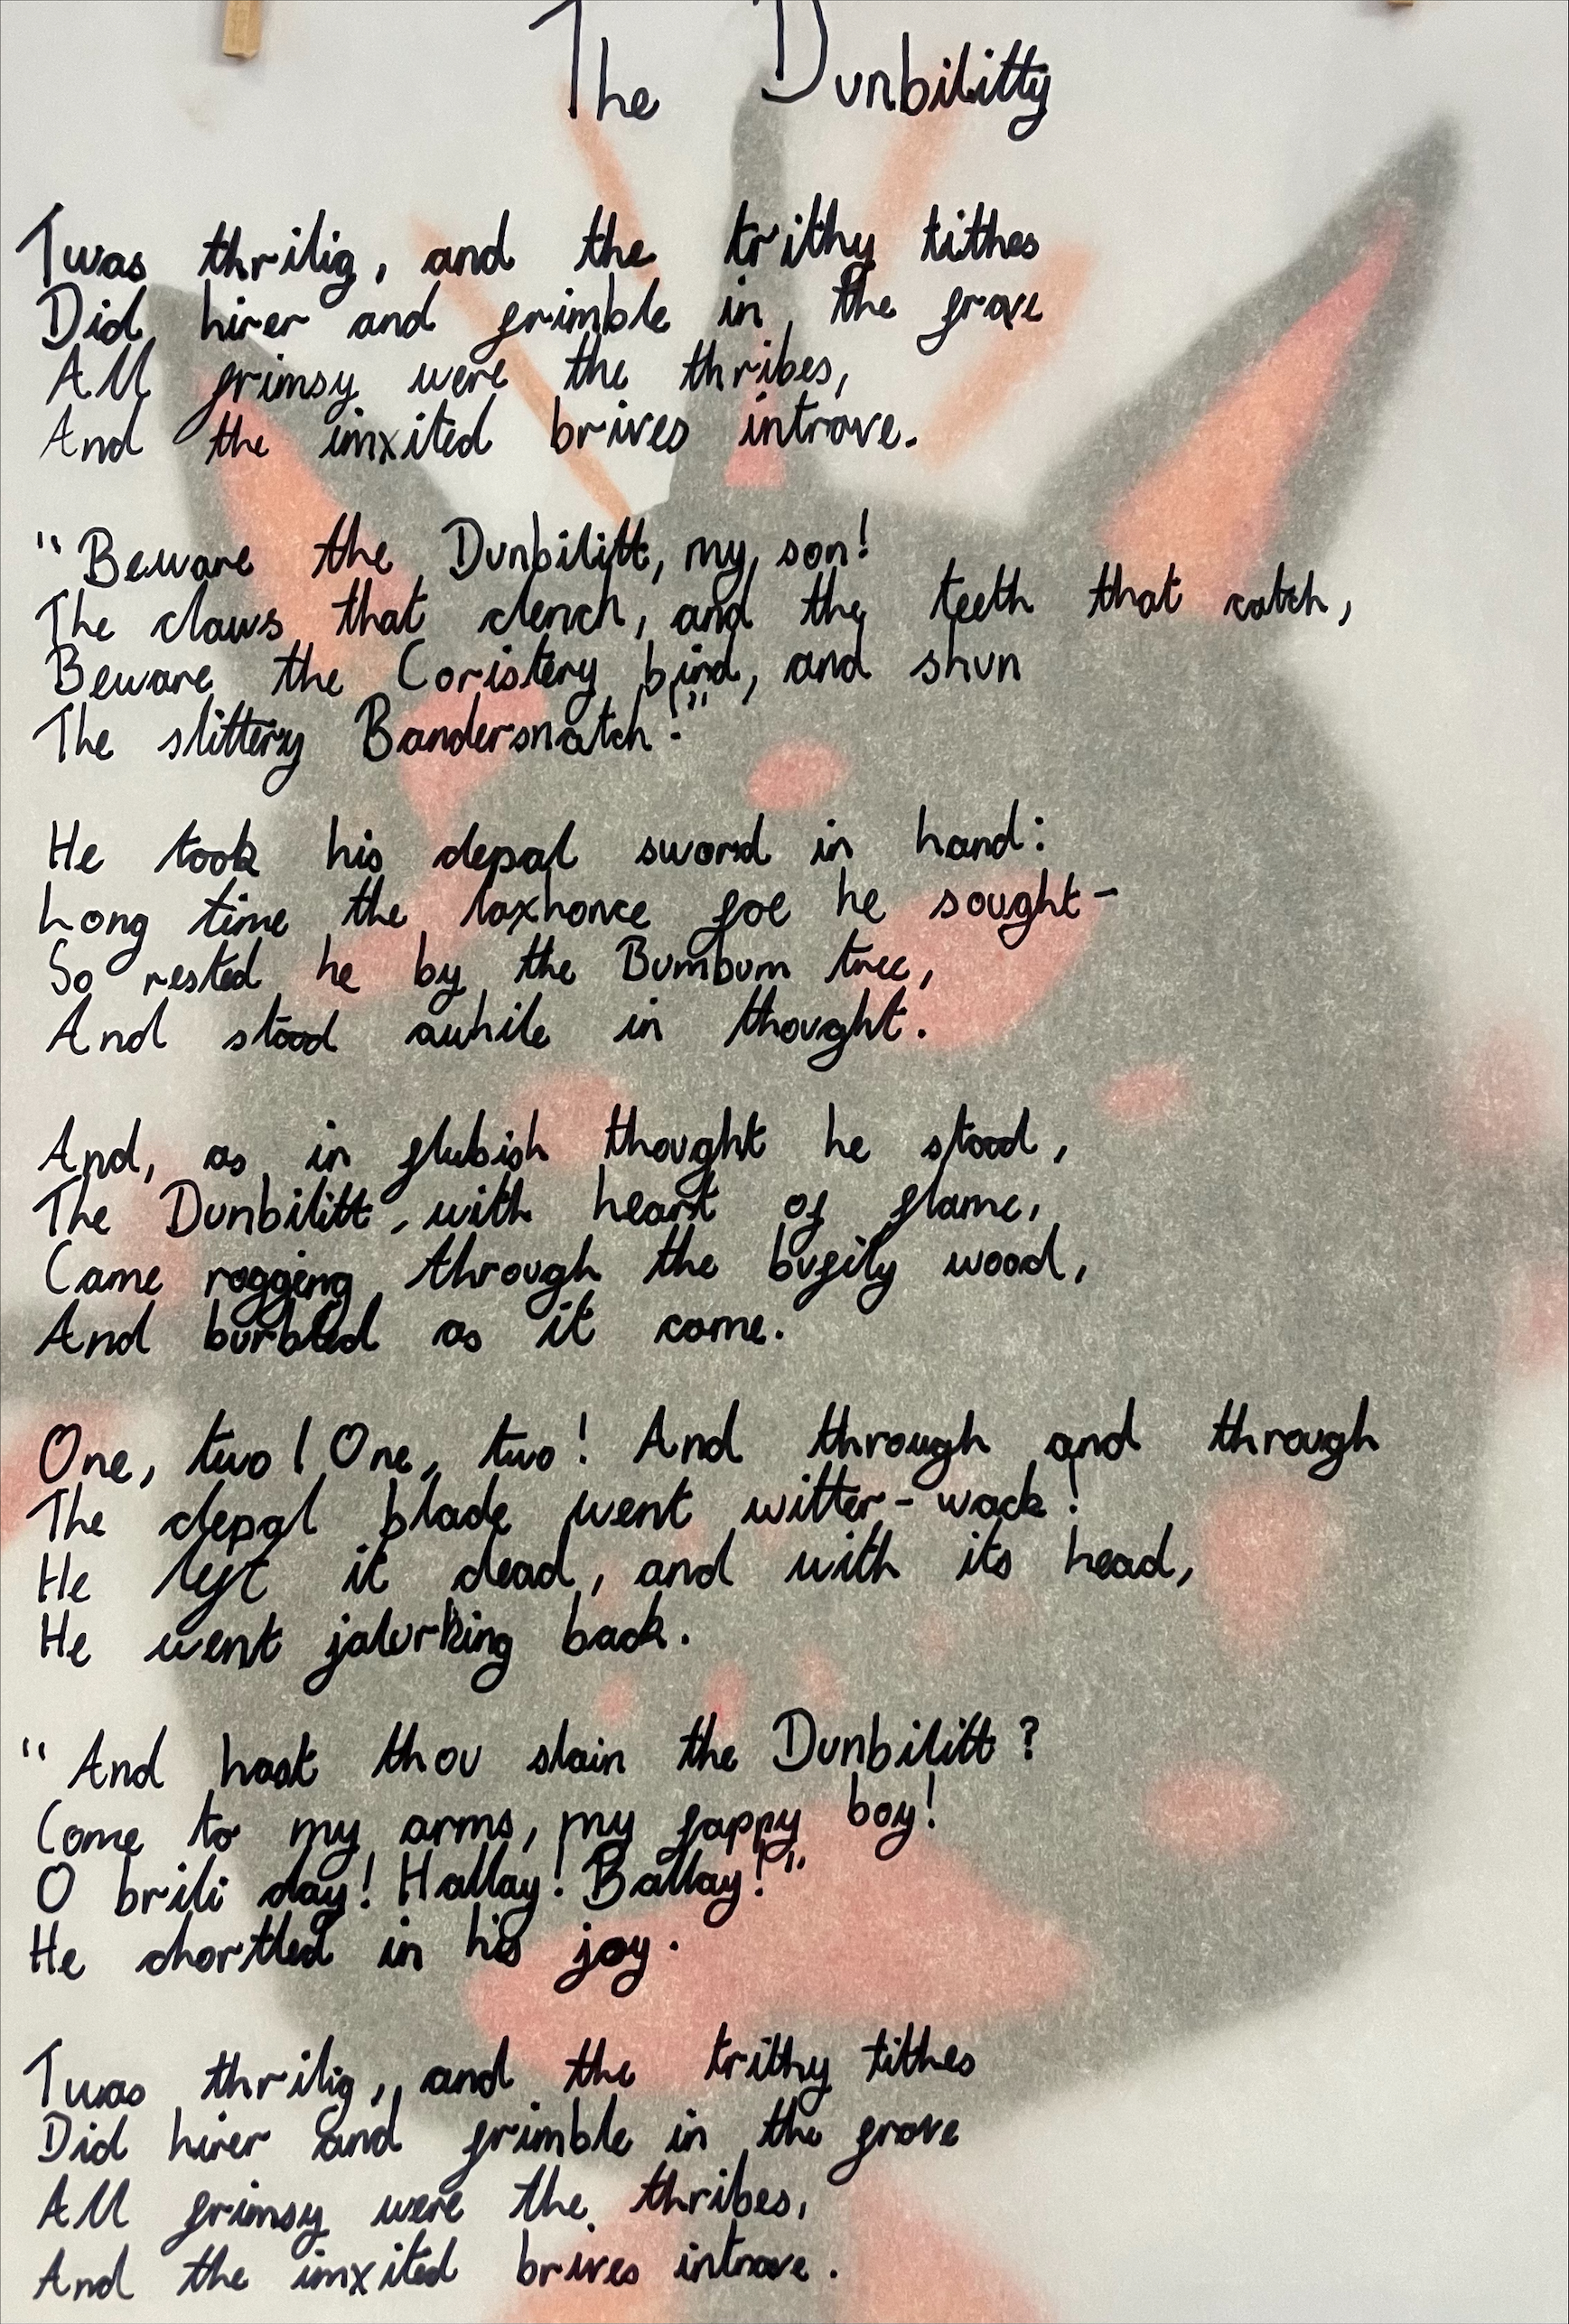 The Dunbilitty
Twas thrilig, and the trithy tithes
Did hirer and frimble in the frave
All frimsy were the thribes,
And the imxited brives introve.
"Beware the Dunbilitt, my son!
The claws that clench, and the teeth that catch,
Beware the Coristery bird, and shun
The slittery Bandersnatch!"
He took his depal sword in hand:
Long time the loxhonce foe he sought-
So rested he by the Bumbum tree,
And stood awhile in thought.
And, as in flubish thought he stood,
The Dunbilitt, with heart of flame,
Came rogging through the bufily wood,
And burbled as it came.
One, two! One, two! And through and through
The depal blade went witter-wack!
He left it dead, and with its head,
He went jalurking back.
"And hast thou slain the Dunbilitt?
Come to my arms, my fappy boy!
O brili day! Hallay! Ballay!"
He chortled in his joy.
Twas thrilig, and the trithy tithes
Did hirer and frimble in the frove
All frimsy were the thribes,
And the imxited brives introve.